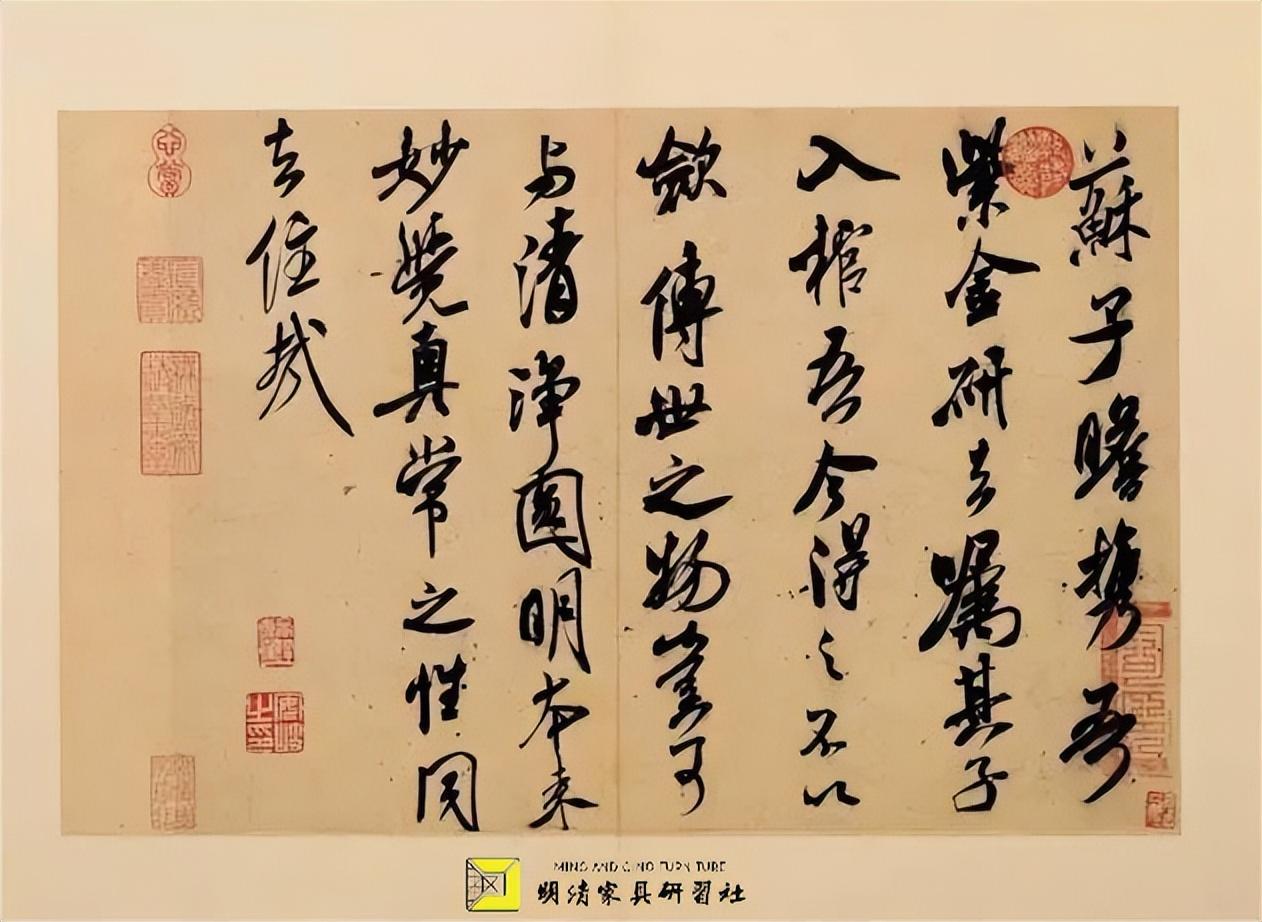 蘇子瞻携吾
紫金研去嘱其子
入棺吾今得之不以
斂傳世之物豈可
与清淨圓明本来
妙覺真常之性同
去住哉
MING AND QING FURNITURE
明清家具研習社